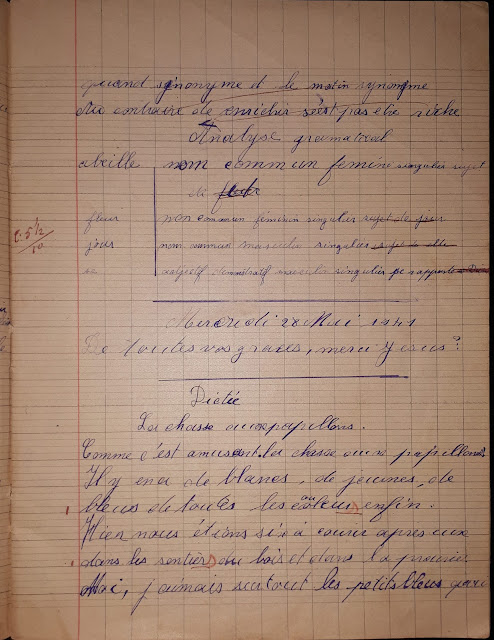 quand synonyme et le matin synonyme
Au contraire de enrichir s'est pas etre riche
Analyse gramatical
abeille nom commun feminine singulier sujet
de
fleur non commun féminin singulier sujet de jour
jour nom commun masculin singulier sujet de
se adjectif démonstratif masculin singulier se rapporte
C. 5 1/2
10
Mercredi 28 Mai 1941
De toutes vos graces, merci Jesus?
Dictée
La chasse aux papillons.
Comme c'est amusant la chasse aux papillons
Il y en a de blancs, de jaunes, de
bleus de toutes les couleurs enfin.
Hier nous étions six à courir après eux
1 dans les sentiers du bois et dans la prairie
Moi, j'aimais surtout les petits bleus